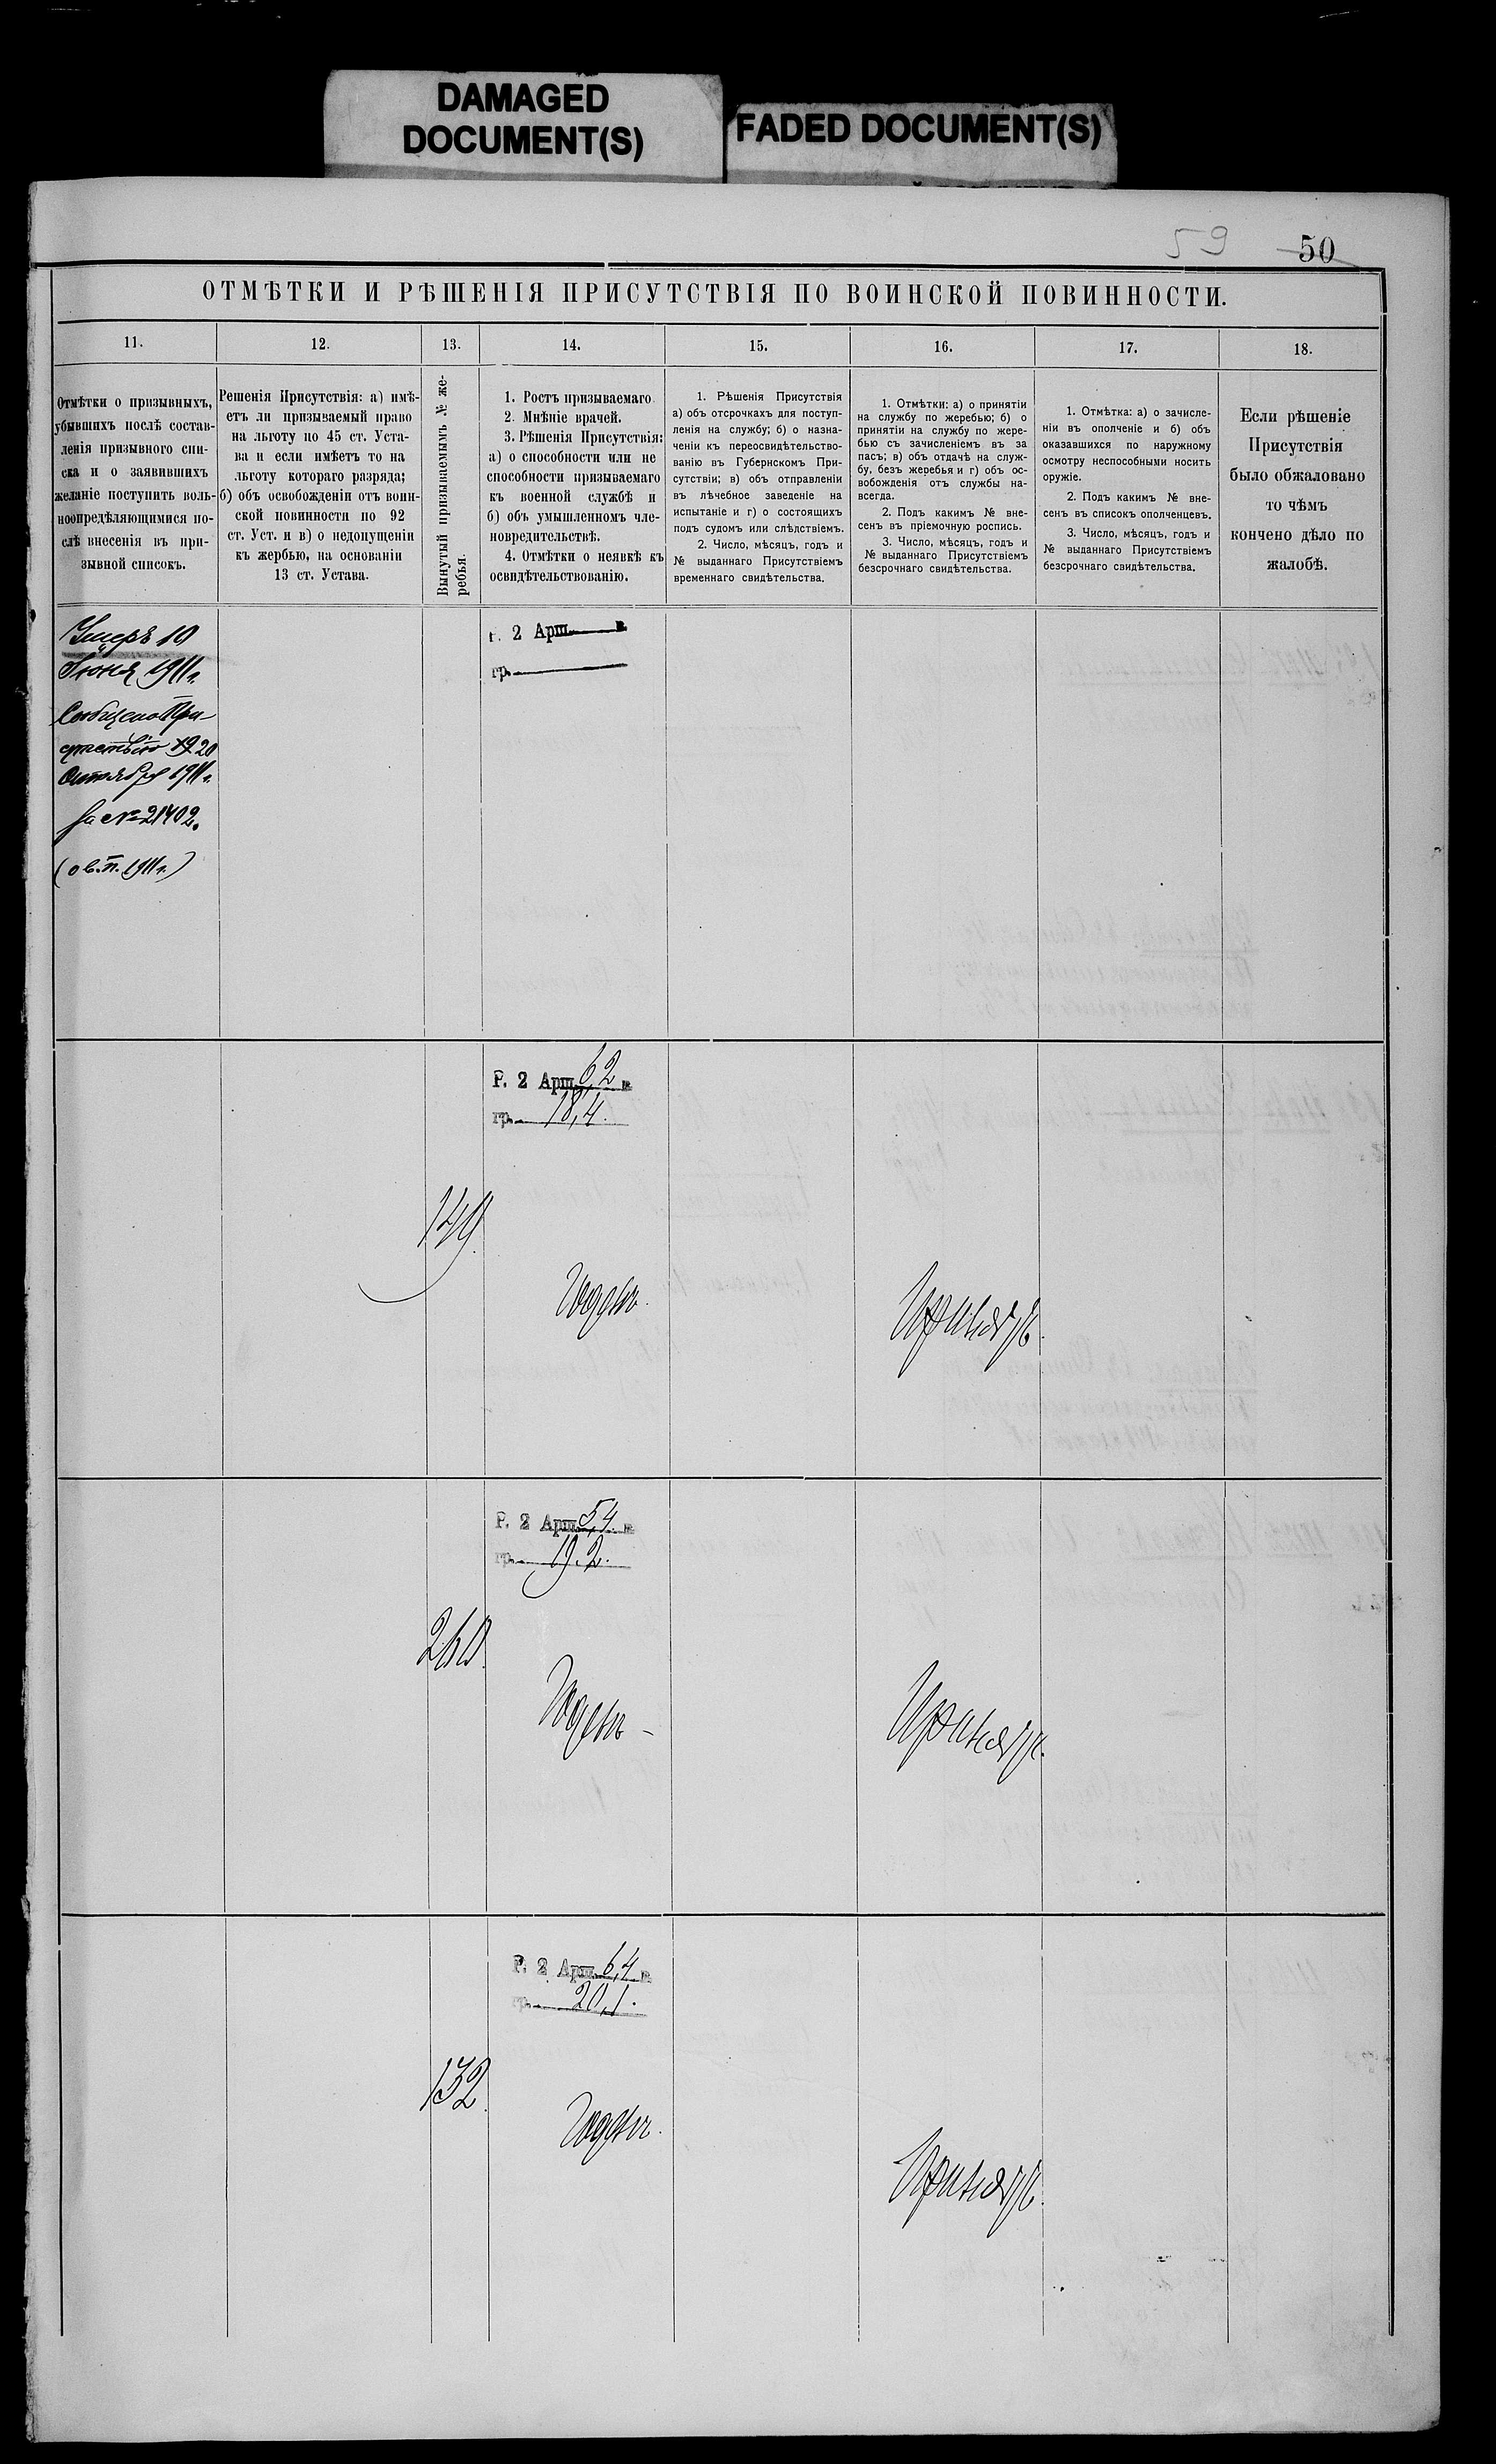 DAMAGED
DOCUMENT(S)
FADED DOCUMENT(S)
59 50
ОТМѢТКИ И РѢШЕНІЯ ПРИСУТСТВІЯ ПО ВОИНСКОЙ ПОВИННОСТИ.
11.
12.
13.
14.
15.
16.
17.
18.
Отмѣтки о призывныхъ,
убывшихъ послѣ состав-
ленія призывного спи-
ска и о заявившихъ
желаніе поступить воль-
ноопредѣляющимися по-
слѣ внесенія въ при-
зывной списокъ.
Решенія Присутствія: а) имѣ-
етъ ли призываемый право
на льготу по 45 ст. Уста-
ва и если имѣетъ то на
льготу котораго разряда;
б) объ освобожденіи отъ воин-
ской повинности по 92
ст. Уст. и в) о недопущеніи
къ жербью, на основаніи
13 ст. Устава.
Вынутый призываемымъ № же-
ребья.
1. Ростъ призываемаго
2. Мнѣніе врачей.
3. Рѣшенія Присутствія:
а) о способности или не
способности призываемаго
къ военной службѣ и
б) объ умышленномъ чле-
новредительствѣ.
4. Отмѣтки о неявкѣ къ
освидѣтельствованію.
1. Рѣшенія Присутствія
а) объ отсрочкахъ для поступ-
ленія на службу; б) о назна-
ченіи къ переосвидѣтельство-
ванію въ Губернскомъ При-
сутствіи; в) объ отправленіи
въ лѣчебное заведеніе на
испытаніе и г) о состоящихъ
подъ судомъ или слѣдствіемъ.
2. Число, мѣсяцъ, годъ и
№ выданнаго Присутствіемъ
временнаго свидѣтельства.
1. Отмѣтки: а) о принятіи
на службу по жеребью; б) о
принятіи на службу по жере-
бью съ зачисленіемъ въ за
пасъ; в) объ отдачѣ на служ-
бу, безъ жеребья и г) объ ос-
вобожденія отъ службы на-
всегда.
2. Подъ какимъ № вне-
сенъ въ пріемочную роспись.
3. Число, мѣсяцъ, годъ и
№ выданнаго Присутствіемъ
безсрочнаго свидѣтельства.
1. Отмѣтка: а) о зачисле-
ніи въ ополченіе и б) объ
оказавшихся по наружному
осмотру неспособными носить
оружіе.
2. Подъ какимъ № вне-
сенъ въ списокъ ополченцевъ.
3. Число, мѣсяцъ, годъ и
№ выданнаго Присутствіемъ
безсрочнаго свидѣтельства.
Если рѣшеніе
Присутствія
было обжаловано
то чѣмъ
кончено дѣло по
жалобѣ.
Умеръ 10
Іюня 1911 г.
Сообщено При-
сутствію 20
Октября 1911 г.
за № 21402.
(о в. п. 1911 г.)
Р. 2 Арш. в.
гр.
Р. 2 Арш. 6,2 в.
гр. 18,4.
149.
Годенъ.
Принятъ.
Р. 2 Арш. 5,4 в.
гр. 19,2.
260.
Годенъ -
Принятъ.
Р. 2 Арш. 6,4 в.
гр. 20,1.
132.
Годенъ.
Принятъ.